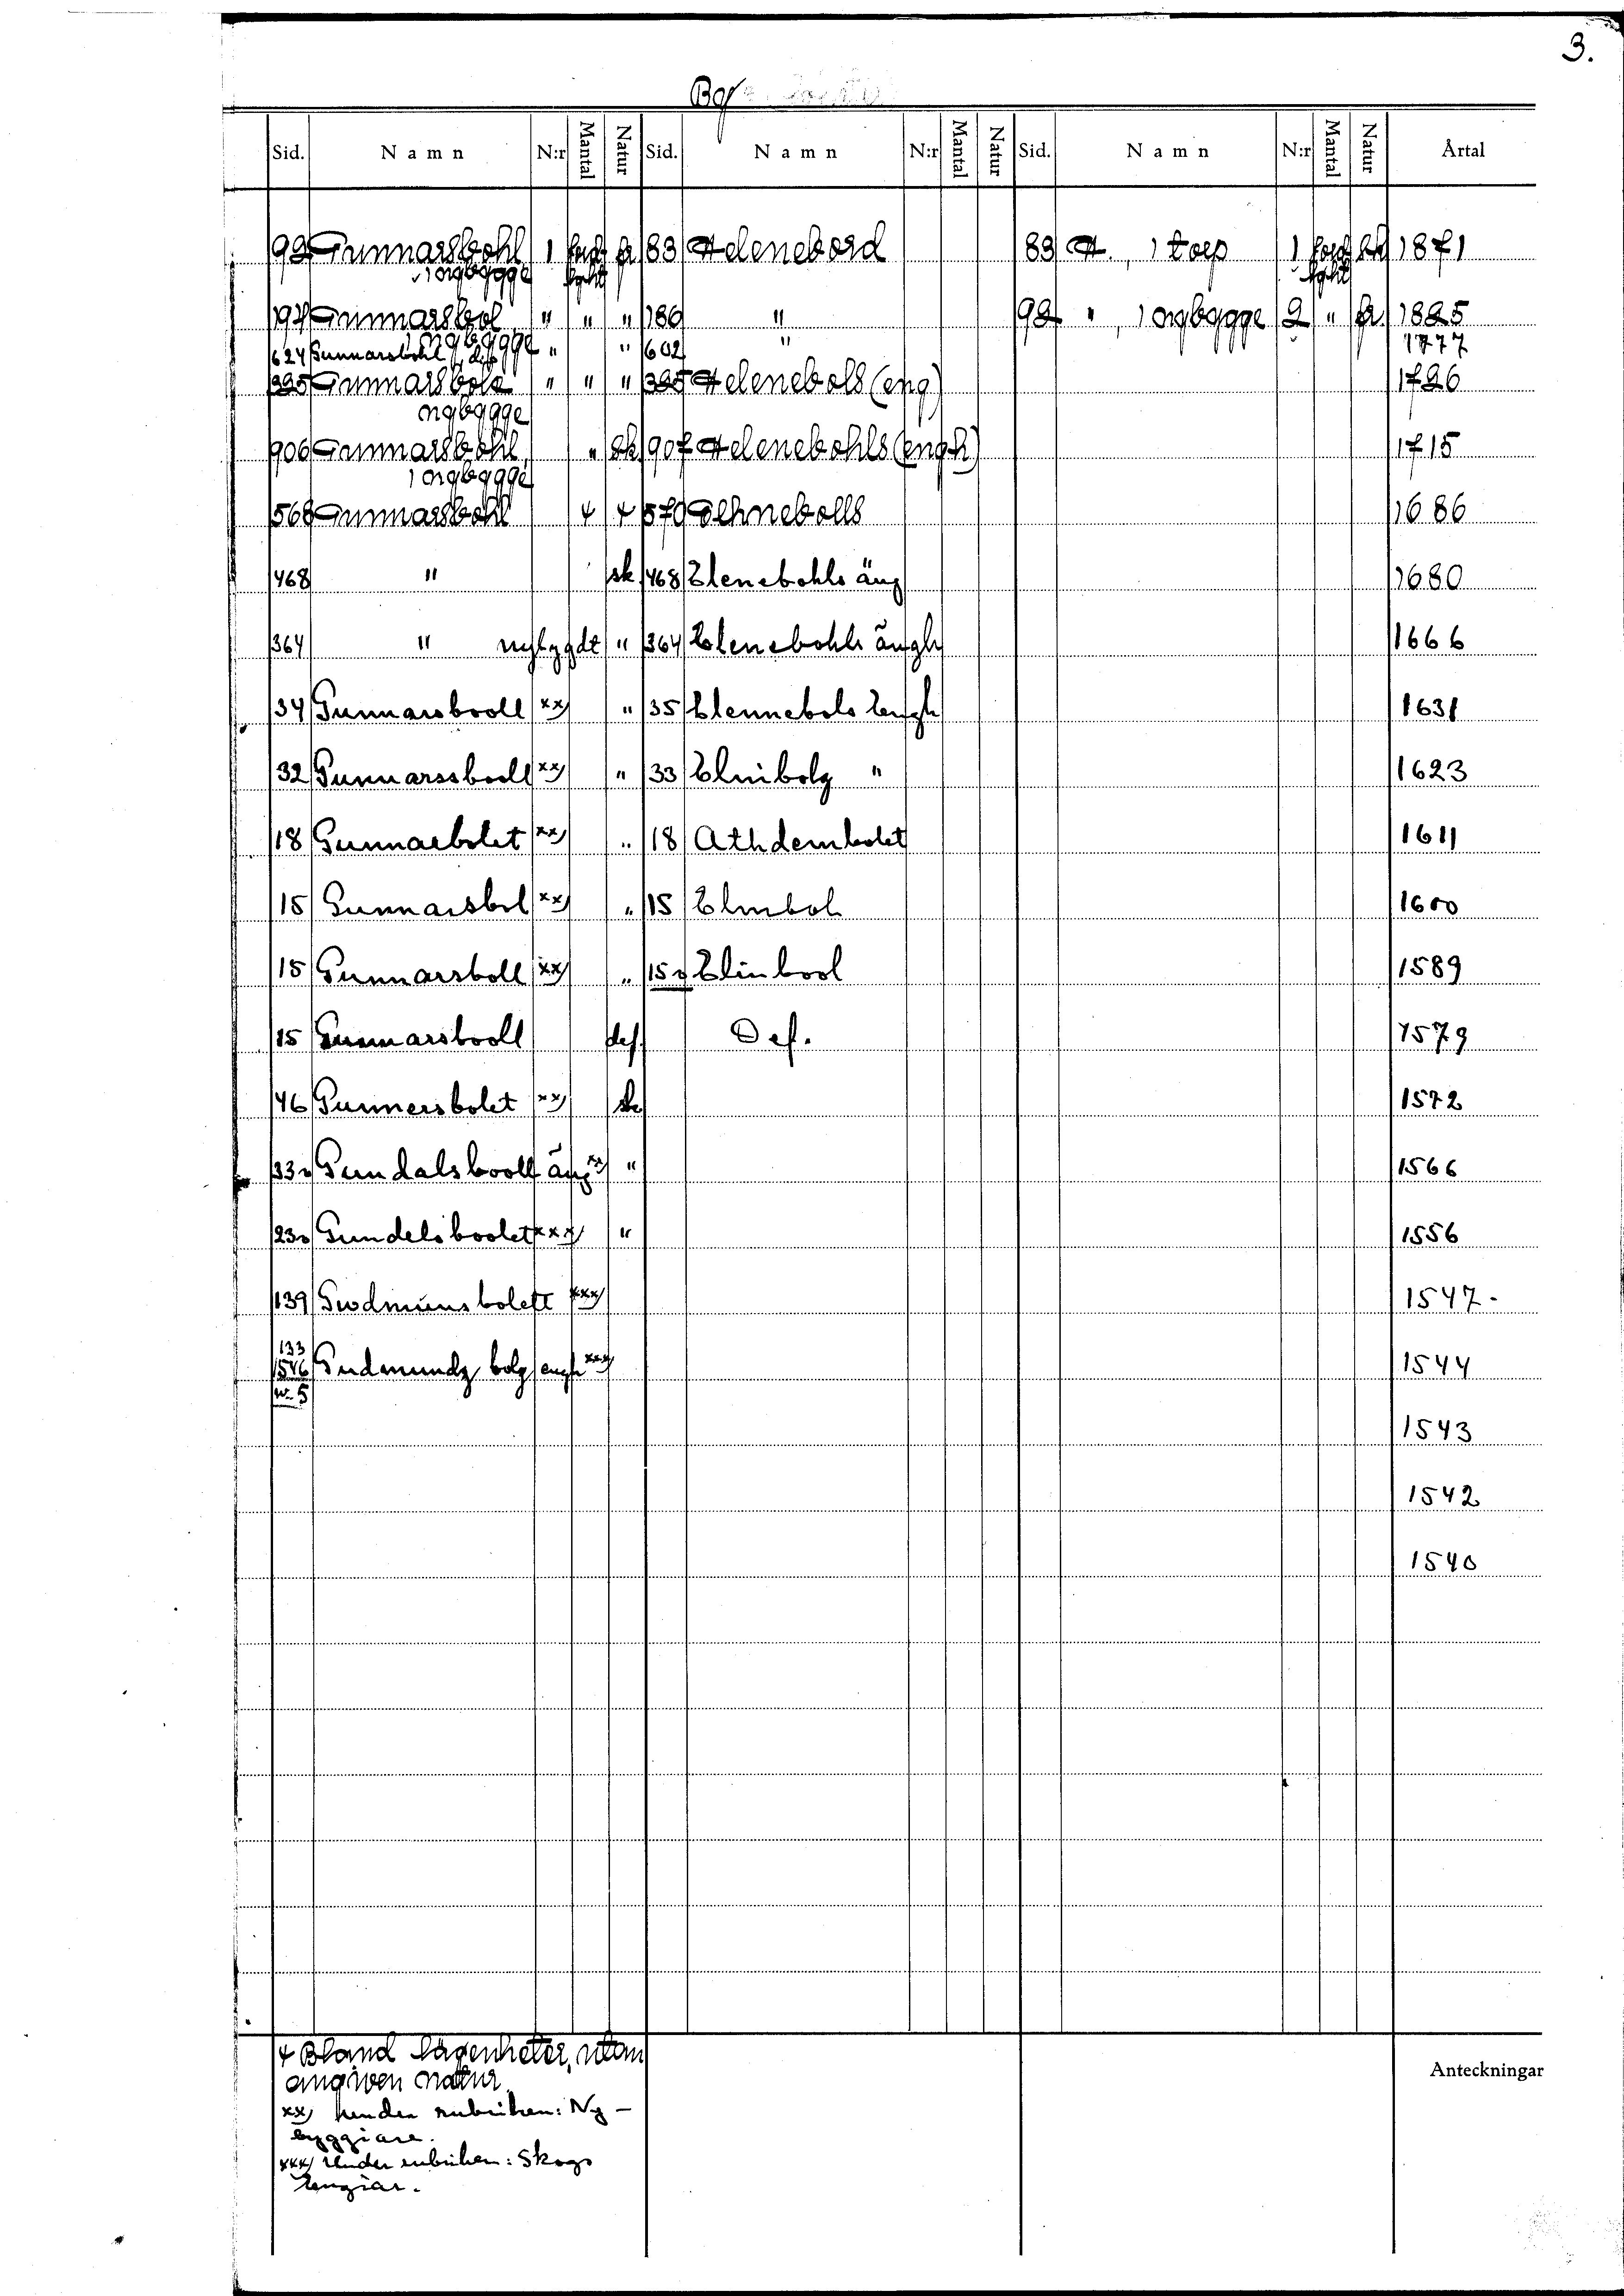 3.
Bo
Sid. Namn N:r Mantal Natur Sid. Namn N:r Mantal Natur Sid. Namn N:r Mantal Natur Årtal
92 Gunnarsbohl 1 fr 83 Helenebord 83 H., 1 torp 1 sk 1871
, 1 nybygge lght lght
194 Gunnarsbol " " " 186 " 92 " , 1 nybygge 2 " fr. 1825
1 nybygge
624 Gunnarsbohl " " 602 " 1777
395 Gunnarsbola " " " 395 Helenebols (eng) 1726
nybygge
906 Gunnarsbohl " sk 907 Helenebohls (engh) 1715
1 nybygge
568 Gunnarsbohl + + 570 Elhnebolls 1686
468 " sk 468 Elenebohls äng 1680
364 " nybygdt " 364 Elenebohls ängh 1666
34 Gunnarsbooll xx) " 35 Elennebols Engh 1631
32 Gunnarssbooll xx) " 33 Elnibolz " 1623
18 Gunnarbolet xx) " 18 Athdembolet 1611
15 Gunnarsbol xx) " 15 Elmbol 1600
15 Gunnarsboll xx) " 15v Elinbool 1589
15 Gunnarsbooll def. Def. 1579
46 Gunnersbolet xx) sk 1572
33v Gundalsbooll äng xx) " 1566
23v Gundelsboolet xxx) " 1556
139 Gwdmunsbolett xxx) 1547.
133
1546 Gudmundz bolz engh xxx) 1544
w. 5
1543
1542
1540
+ Bland lägenheter, utan
angiven natur.
Anteckningar
xx) under rubriken: Ny-
byggiare.
xxx) Under rubriken: Skogs
Engiar.